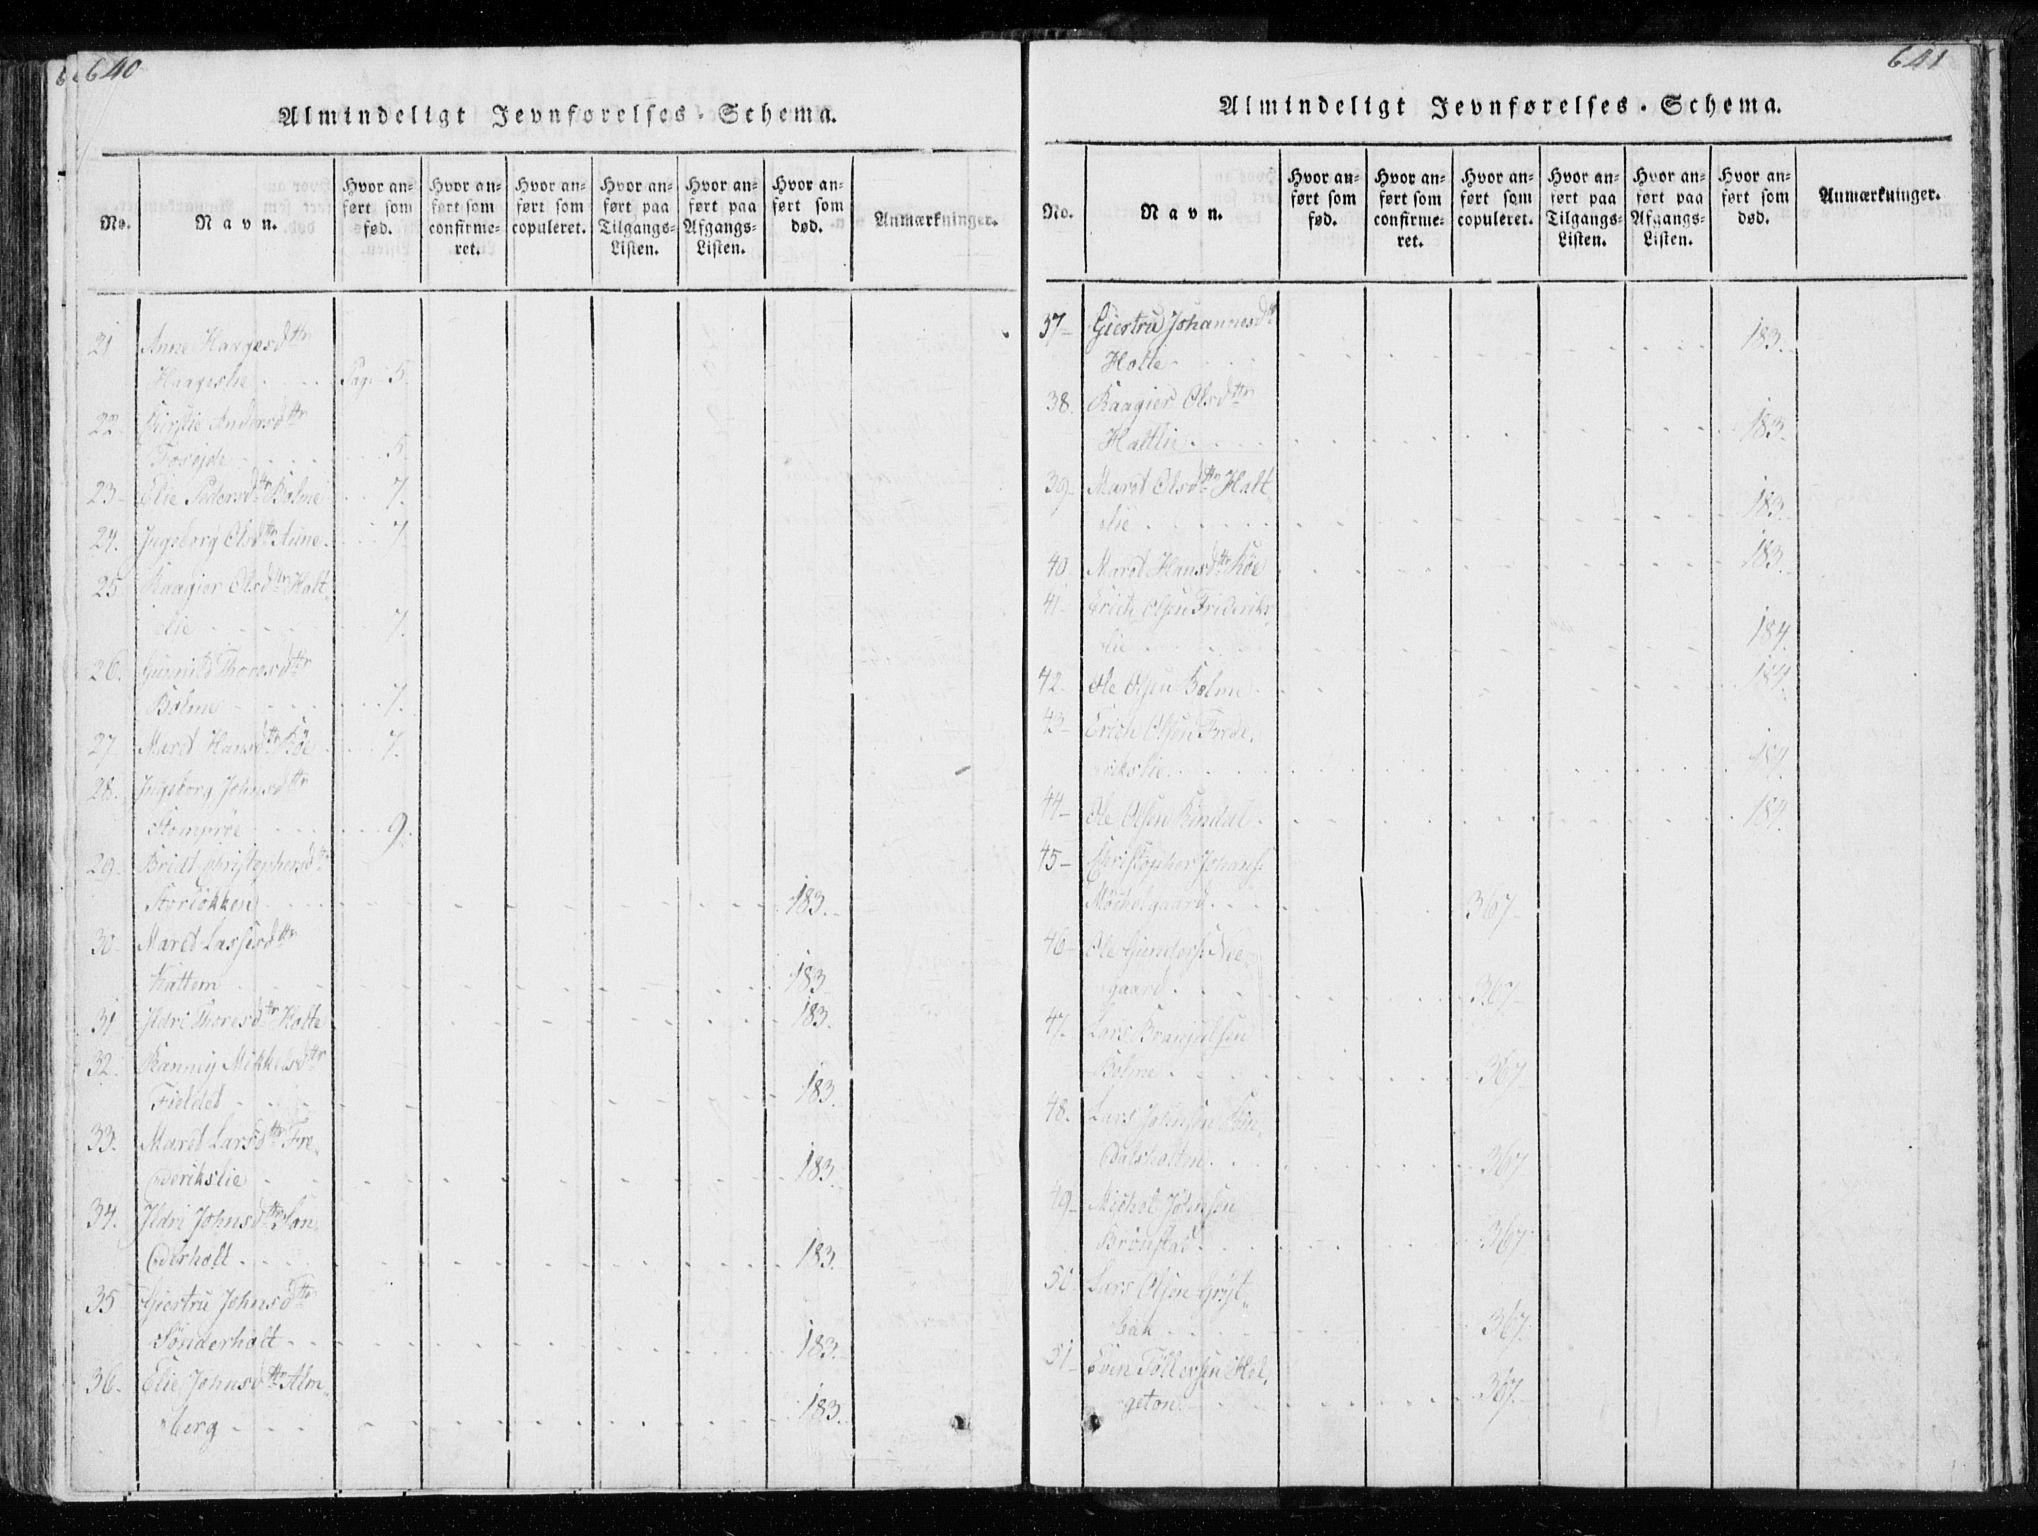 640
Almindeligt Jevnførelses-Schema.
No.
Navn.
Hvor anført som fød.
Hvor anført som confirmeret.
Hvor anført som copuleret.
Hvor anført paa Tilgangs-Listen.
Hvor anført paa Afgangs-Listen.
Hvor anført som død.
Anmærkninger.
21 Anne Haagesdttr
Haageslie Pag: 5.
22. Kirstie Andersdttr
5.
23- Elie Pedersdttr Bolme 7.
24. Ingeborg Olsdttr Aune 7
25 Raagier Olsdttr Halt
slie 7.
26. Gunnild Thoresdttr
Bolme 7.
27. Maret Hansdttr Röe 7.
28. Ingeborg Johnsdttr
9.
29. Bridt Christophersdttr
Storlökken 183.
30- Maret Lassesdttr
Kattem 183
31 Ildri Thoresdttr Holte 183.
32. Ranney Mikkelsdttr
Fieldet 183.
33. Maret Larsdttr Fre„
derikslie 183.
34. Ildri Johnsdttr Søn„
derholt 183.
35 Giertru Johnsdttr
Sønderholt 183.
36. Elie Johnsdttr Alm„
„berg 183.
641
Almindeligt Jevnførelses-Schema.
No.
Navn.
Hvor anført som fød.
Hvor anført som confirmeret.
Hvor anført som copuleret.
Hvor anført paa Tilgangs-Listen.
Hvor anført paa Afgangs-Listen.
Hvor anført som død.
Anmærkninger.
37- Giertru Johannesdtr
Holte 183.
38. Raagier Olsdttr
Haltlie 183.
39- Maret Olsdttr Halt„
slie 183.
40 Maret Hansdttr Röe 183.
41- Erich Olsen Friderik„
slie 184.
42- Ole Olsen Bolme 184.
43- Erich Olsen Frede„
rikslie 184.
44- Ole Olsen Rindal 184.
45- Christopher Johans:
Möchelgaard 367-
46- Ole Gunders: Nee„
gaard 367-
47- Lars
Bolme 367
48. Lars Johnsen Rin„
dalsholten 367
49- Michel Johnsen
Brönstad 367
50 Lars Olsen Gröt„
367.
51- Sven Tollevsen Hel„
geton 367.